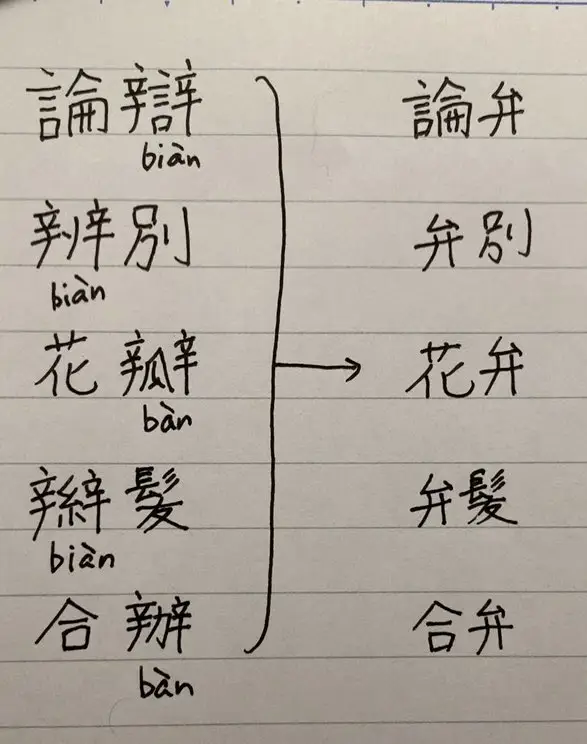 論辯 論弁
biàn
辨別 弁別
biàn
花瓣 → 花弁
bàn
辮髮 弁髪
biàn
合辦 合弁
bàn